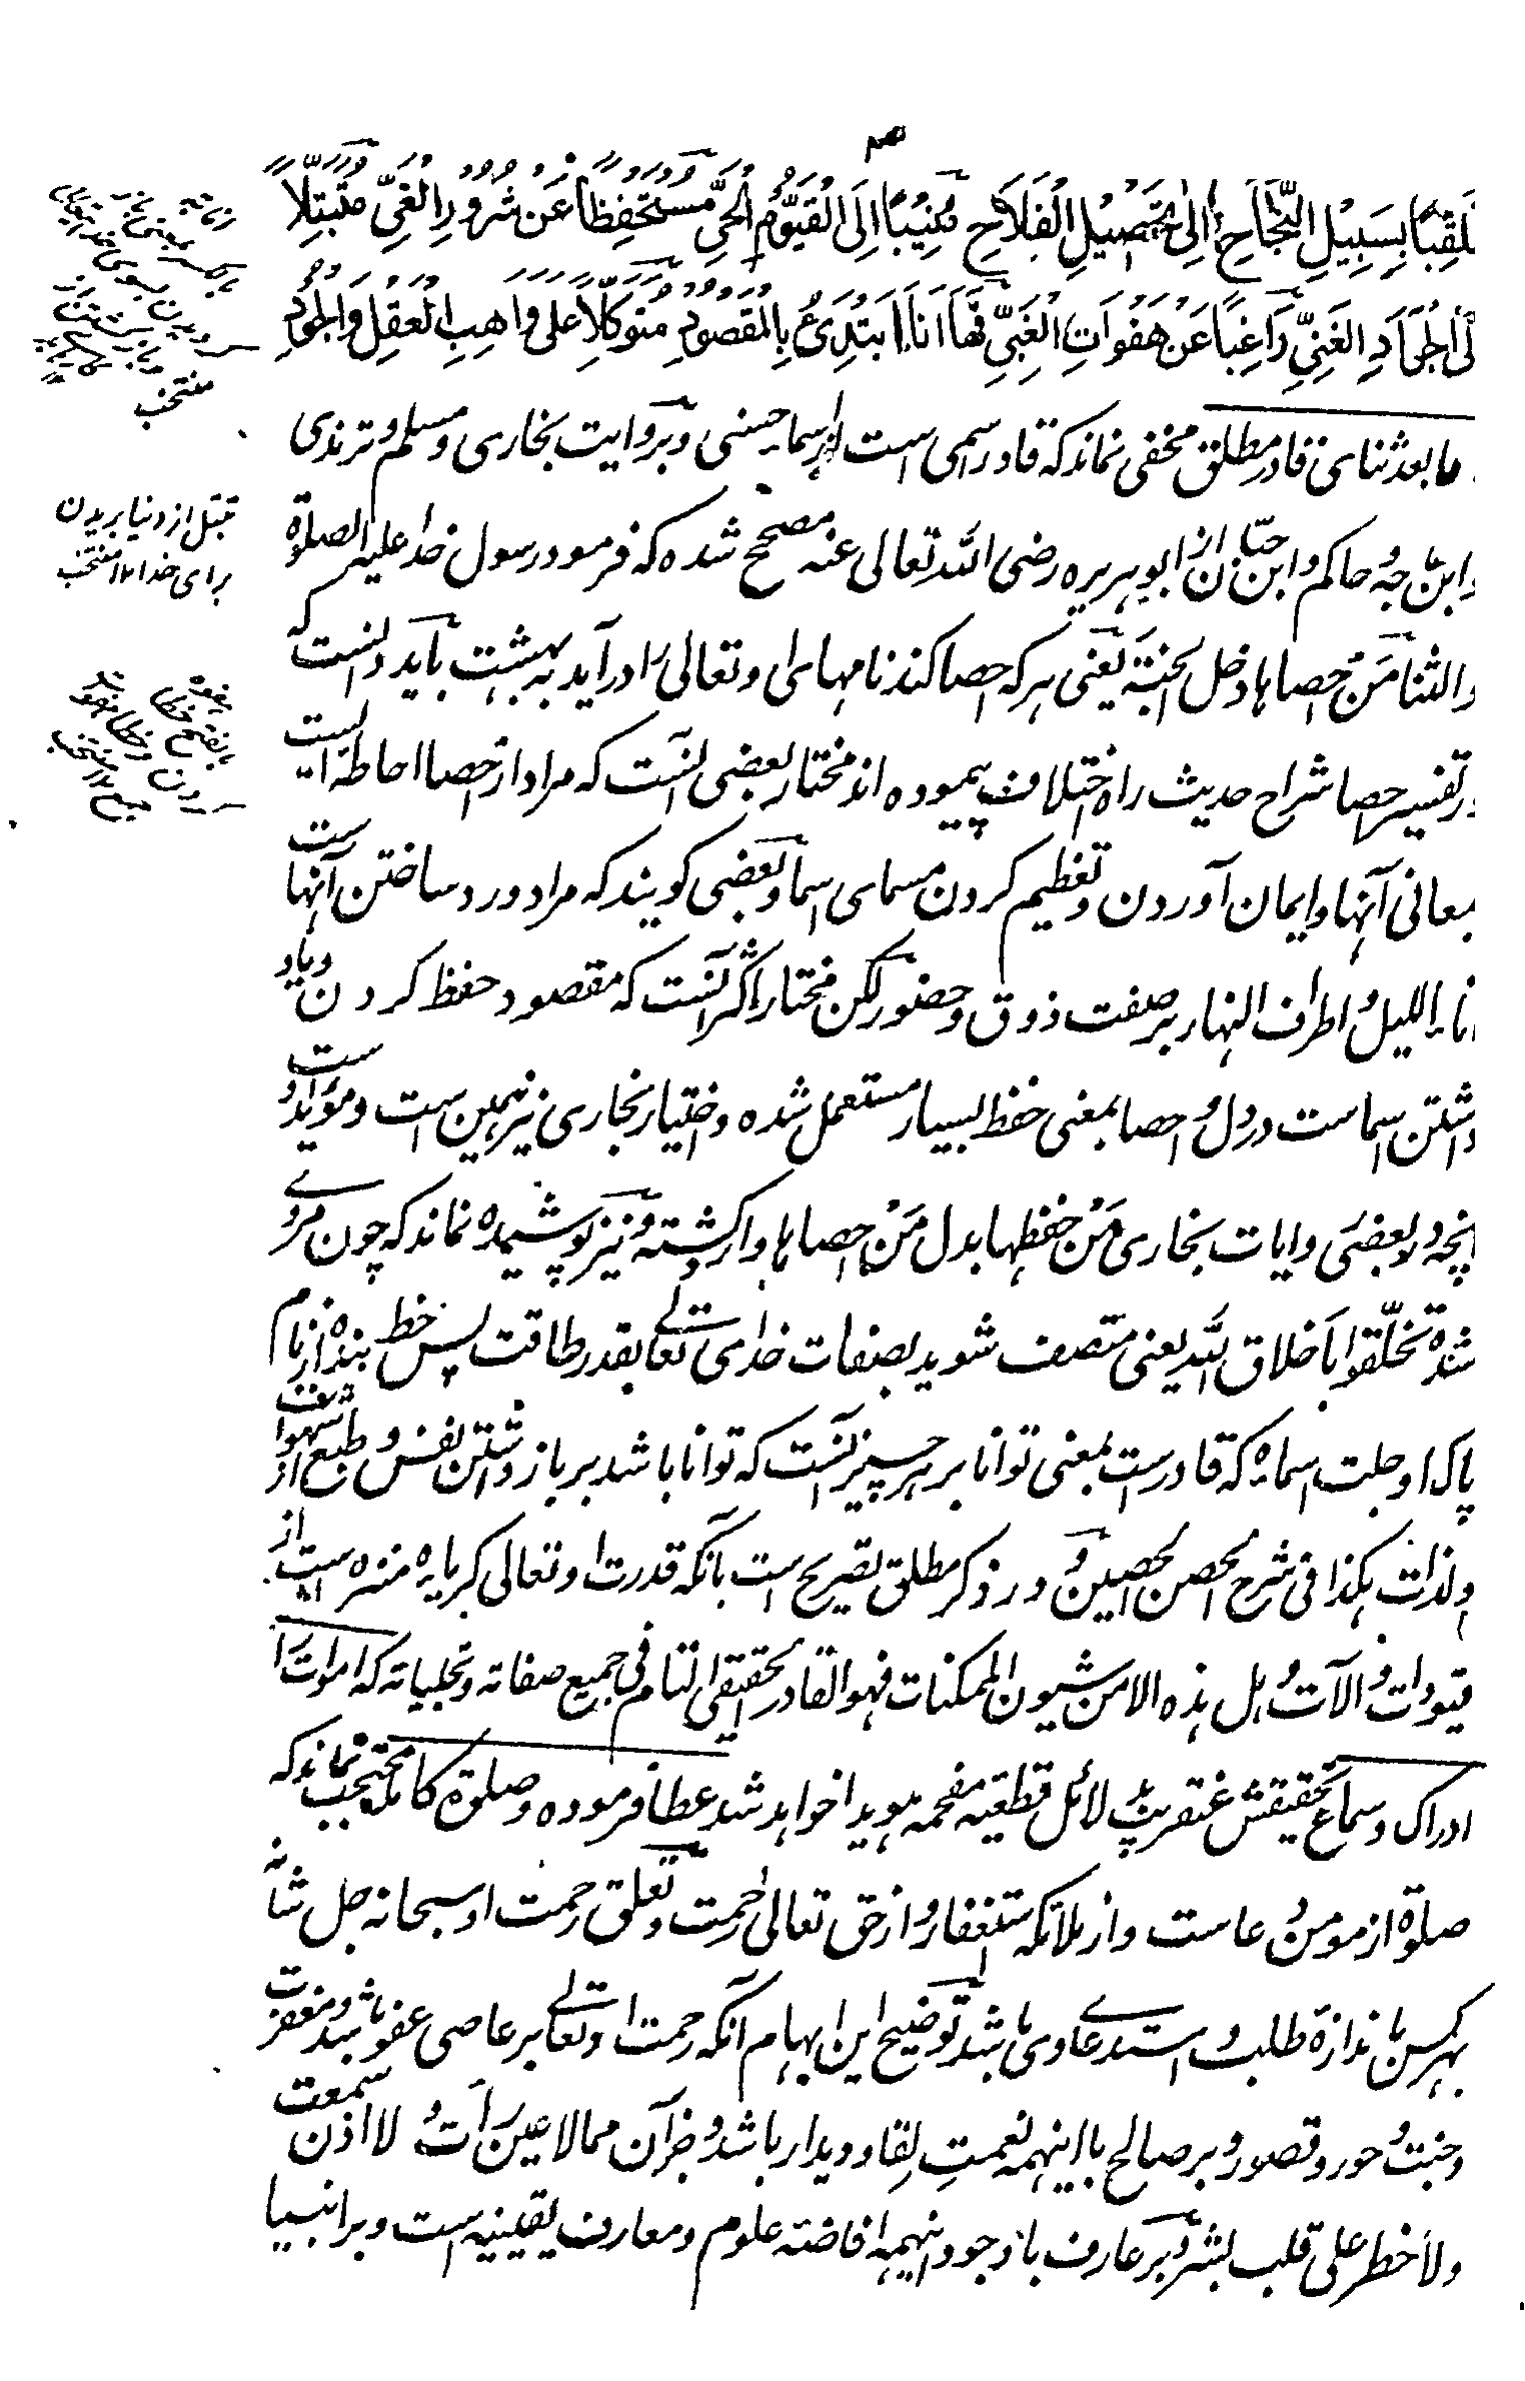 بِسَبِيْلِ النَّجَاحِ اِلٰی تَحْصِيْلِ الْفَلَاحِ مُنِيْبًا اِلَی الْقَيُّوْمِ الْحَيِّ مُسْتَحْفِظًا عَنْ شُرُوْرِ الْغَيِّ مُتَبَتِّلًا
الْجَوَادِ الْغَنِيِّ رَاغِبًا عَنْ هَفَوَاتِ الْغَبِيِّ فَهَا اَنَا اَبْتَدِئُ بِالْمَقْصُوْدِ مُتَوَكِّلًا عَلٰی وَاهِبِ الْعَقْلِ وَالْجُوْدِ
ما بعد ثنای قادر مطلق مخفی نماند که قادر اسمی است از اسمای حسنی و بروایت بخاری و مسلم و ترمذی
وابن ماجه و حاکم وابن حبان از ابو هریره رضی الله تعالی عنه مصحح شده که فرمود رسول خدا علیه الصلوة
والثنا مَن احصاها دخل الجنة یعنی هر که احصا کند نامهای او تعالی را در آید به بهشت باید دانست که
در تفسیر احصا شراح حدیث راه اختلاف پیموده اند مختار بعضی آنست که مراد از احصا احاطه است
بمعانی آنها و ایمان آوردن و تعظیم کردن مسمای اسما و بعضی گویند که مراد ورد ساختن آنها ست
اناء اللیل و اطراف النهار بر صفت ذوق و حضور لکن مختار اکثر آنست که مقصود حفظ کردن و یاد
داشتن اسماست در دل و احصا بمعنی حفظ بسیار مستعمل شده و اختیار بخاری نیز همین است و مؤید اوست
انچه در بعضی روایات بخاری مَنْ حفظها بدل مَنْ احصاها وارد گشته و نیز پوشیده نماند که چون مروی
شده تخلّقوا باخلاق الله یعنی متصف شوید بصفات خدای تعالے بقدر طاقت پس حظ بنده از نام
پاک او جلت اسماؤه که قادر است بمعنی توانا بر هر چیز آنست که توانا باشد بر باز داشتن نفس و طبع از شهوات
و لذات هکذا فی شرح الحصن الحصین و در ذکر مطلق تصریح است بانکه قدرت او تعالی کبریاءه منزه است از
قیودات و الآت و هل هذه الا من شیون الممکنات فهو القادر الحقیقی التام فی جمیع صفاته و تجلیاته که اموات را
ادراک و سماع تحقیقش عنقریب بدلائل قطعیه مفحمه هویدا خواهد شد عطا فرموده و صلوة کامله محتجب نماند که
صلوة از مومن دعاست و از ملائکه استغفار و از حق تعالی رحمت و تعلق رحمت او سبحانه جل شانه
بهر کس باندازهٔ طلب و استدعا وی باشد توضیح این ابهام آنکه رحمت او تعالے بر عاصی عفو باشد و مغفرت
و جنت و حور و قصور و بر صالح با اینهمه نعمتِ لِقا و دیدار باشد و جز آن مما لا عین رأت و لا اذن سمعت
ولا خطر علی قلب بشر و بر عارف با وجود اینهمه افاضه علوم و معارف یقینیه است و بر انبیا
تبتل از دنیا بریدن
برای خدا ۱۲ منتخب